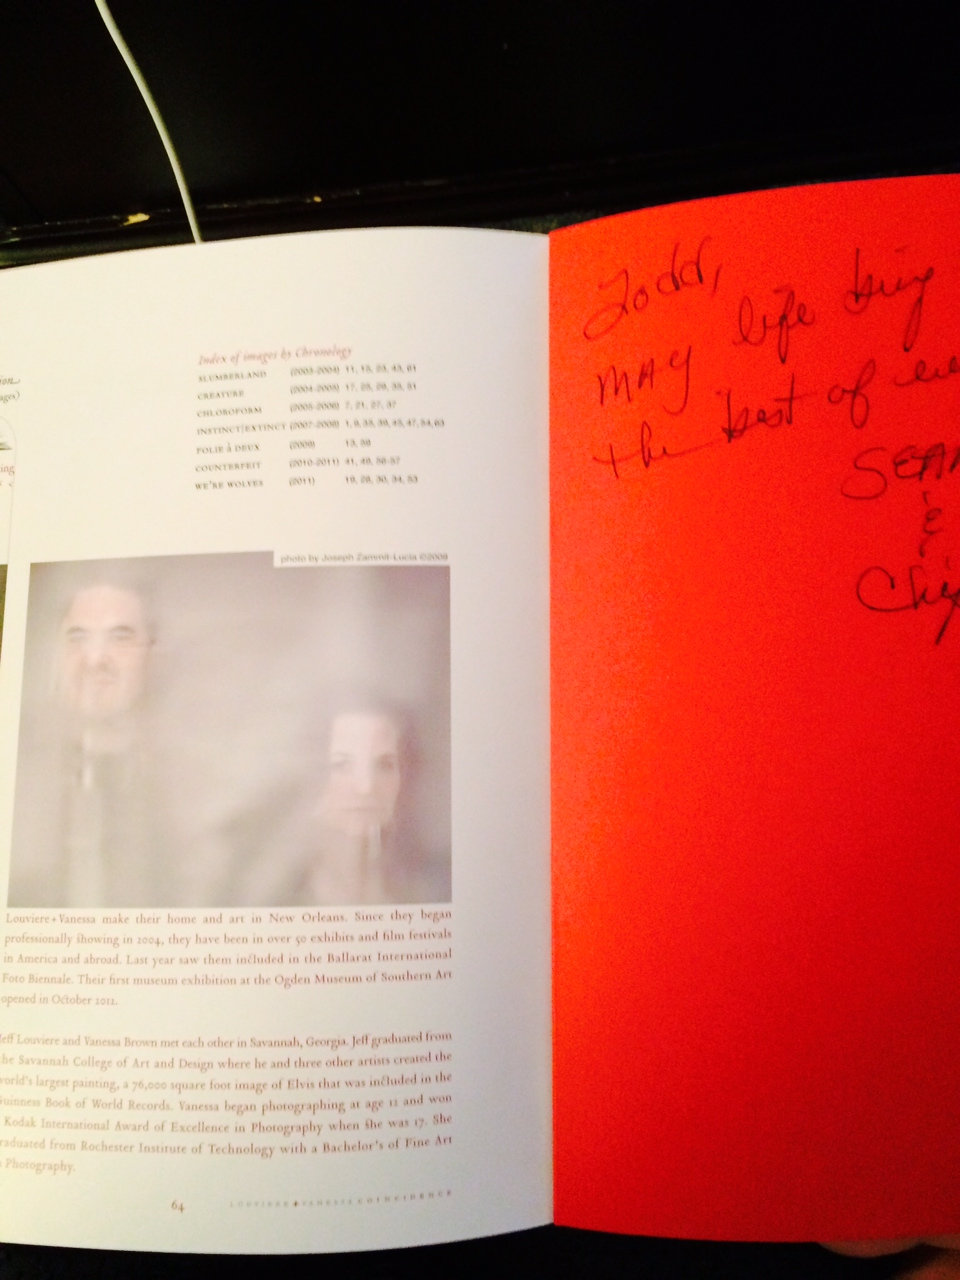 Index of images by Chronology
SLUMBERLAND (2003-2004) 11, 15, 23, 43, 61
CREATURE (2004-2005) 17, 25, 29, 35, 51
CHLOROFORM (2005-2006) 7, 21, 27, 37
INSTINCT/EXTINCT (2007-2009)
FOLIE à DEUX (2009) 13, 59
COUNTERFEIT (2010-2011) 41, 49, 56-57
WE'RE WOLVES (2011) 19, 29, 30, 34, 53
photo by Joseph Zammit-Lucia ©2009
Louviere+Vanessa make their home and art in New Orleans. Since they began
professionally showing in 2004, they have been in over 50 exhibits and film festivals
in America and abroad. Last year saw them included in the Ballarat International
Foto Biennale. Their first museum exhibition at the Ogden Museum of Southern Art
opened in October 2012.
Jeff Louviere and Vanessa Brown met each other in Savannah, Georgia. Jeff graduated from
the Savannah College of Art and Design where he and three other artists created the
world's largest painting, a 76,000 square foot image of Elvis that was included in the
Guinness Book of World Records. Vanessa began photographing at age 12 and won
Kodak International Award of Excellence in Photography when she was 17. She
graduated from Rochester Institute of Technology with a Bachelor's of Fine Art
Photography.
64 LOUVIERE+VANESSA COINCIDENCE
Todd,
may life bring
the best of
SEAN
&